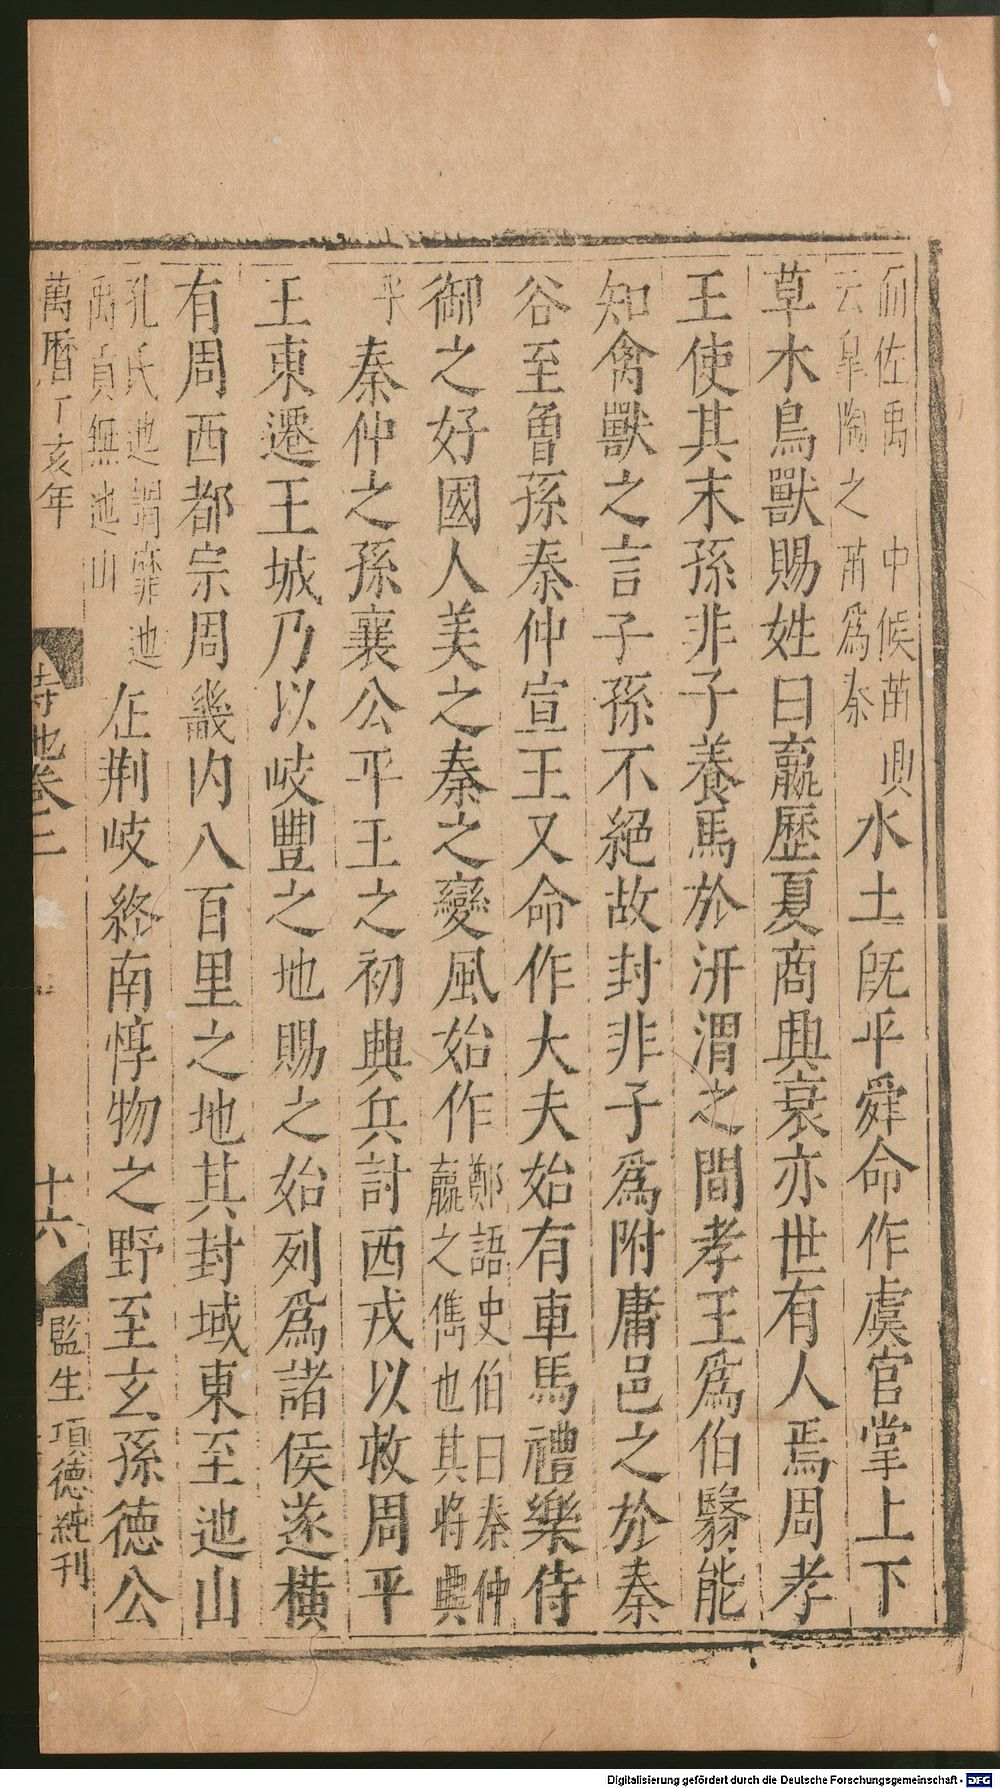 而佐禹 中候苗興
云皐陶之苗爲秦
水土旣平舜命作虞官掌上下
草木鳥獸賜姓曰嬴歷夏商興衰亦世有人焉周孝
王使其末孫非子養馬於汧渭之間孝王爲伯翳能
知禽獸之言子孫不絕故封非子爲附庸邑之於秦
谷至曾孫秦仲宣王又命作大夫始有車馬禮樂侍
御之好國人美之秦之變風始作
鄭語史伯曰秦仲
嬴之雋也其將興
乎
秦仲之孫襄公平王之初興兵討西戎以救周平
王東遷王城乃以岐豐之地賜之始列爲諸侯遂橫
有周西都宗周畿內八百里之地其封域東至迆山
孔氏迆謂靡迆
禹貢無迆山
在荆岐終南惇物之野至玄孫德公
萬曆丁亥年
詩地卷二
十六
監生項德純刊
Digitalisierung gefördert durch die Deutsche Forschungsgemeinschaft - DFG